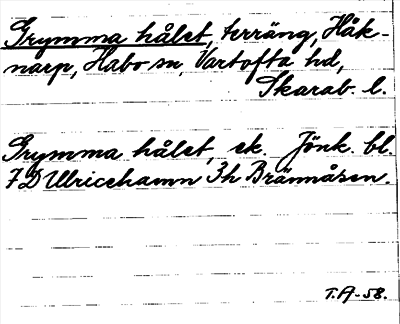 Grymma hålet, terräng, Håk-
narp, Habo sn, Vartofta hd,
Skarab. l.
Grymma hålet, ek. Jönk. bl.
7 D Ulricehamn 3h Brännåsen.
T.A-58.